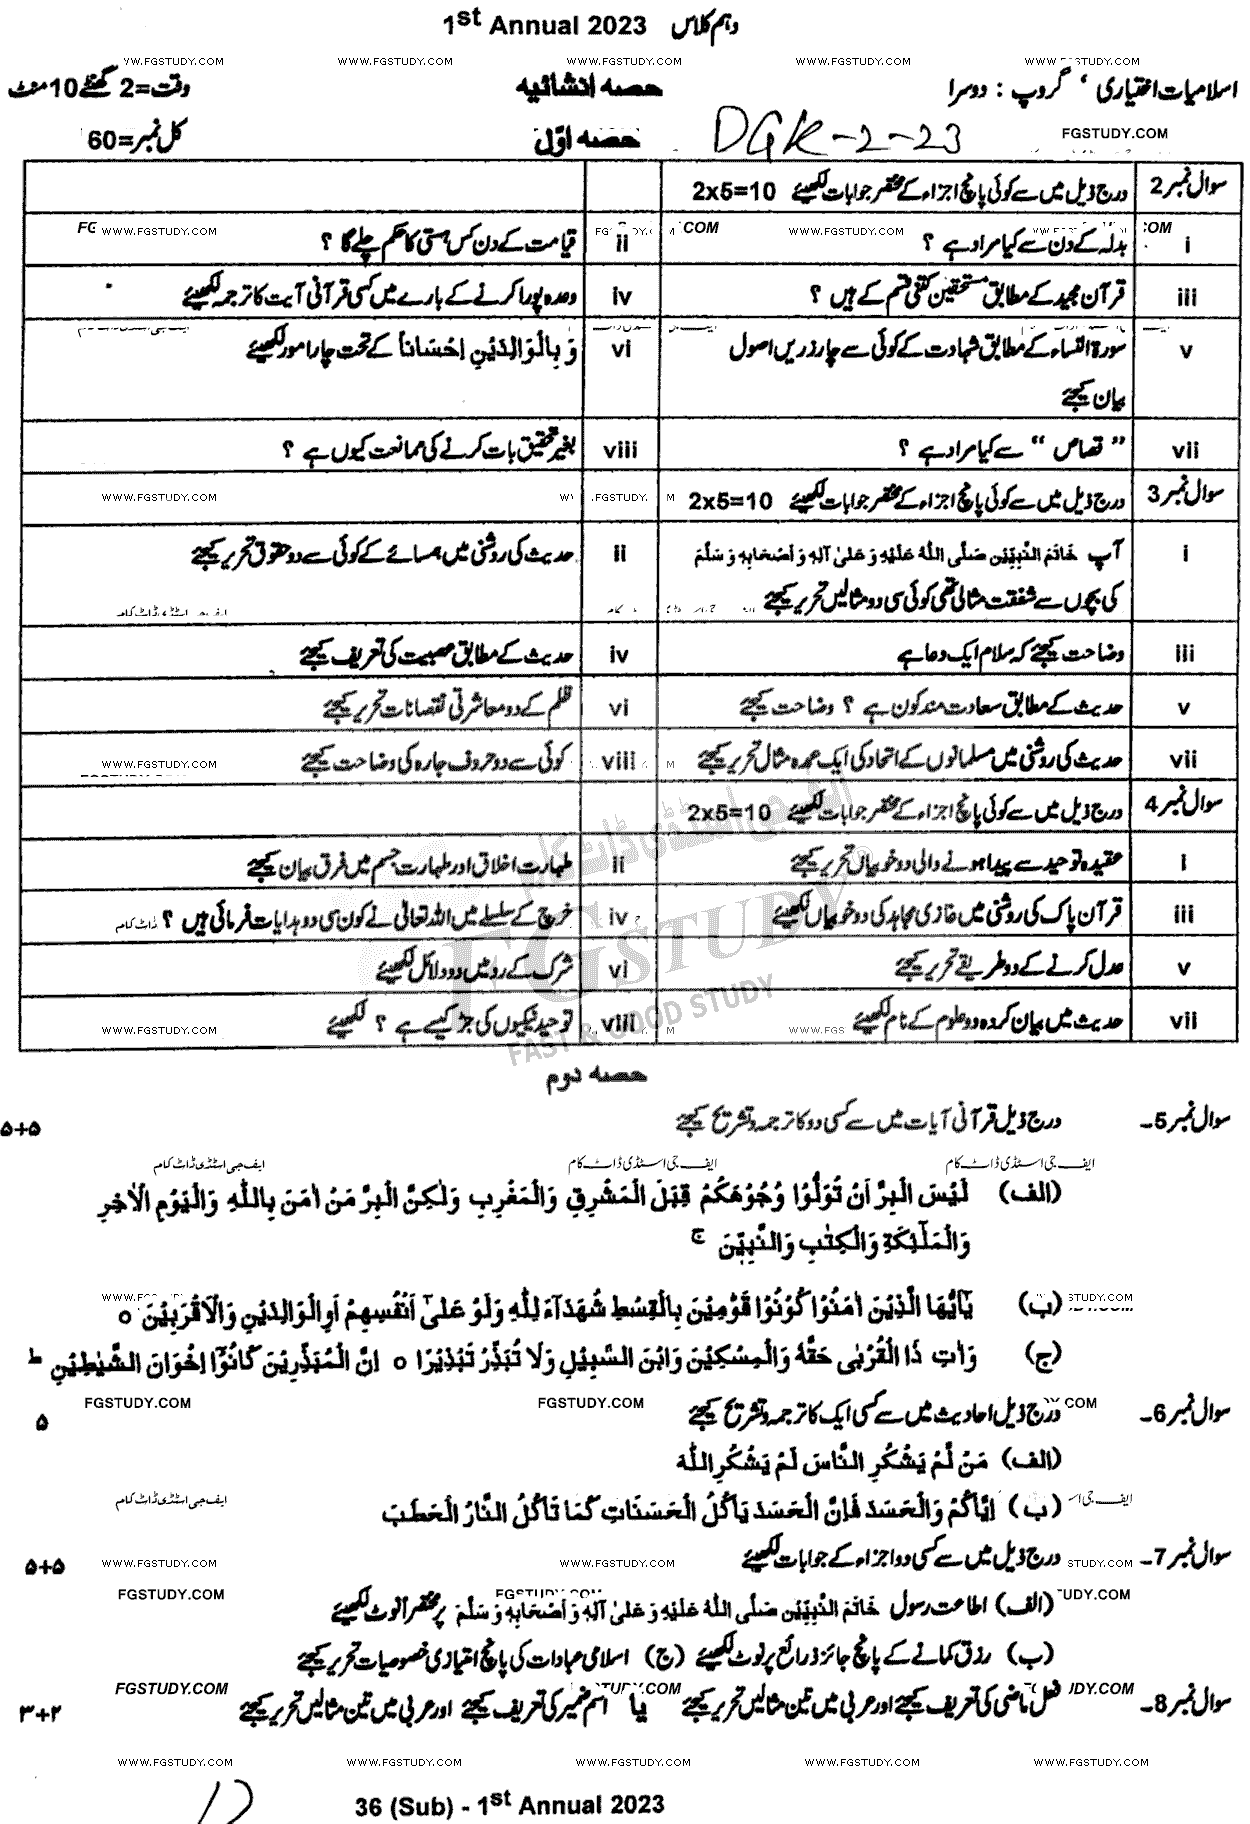 1st Annual 2023 دہم کلاس
WW.FGSTUDY.COM WWW.FGSTUDY.COM WWW.FGSTUDY.COM WWW.FGSTUDY.COM WWW.FGSTUDY.COM
اسلامیات اختیاری ، گروپ : دوسرا حصہ انشائیہ وقت=2 گھنٹے 10 منٹ
FGSTUDY.COM DGK-2-23 حصہ اوّل کل نمبر=60
سوال نمبر 2 درج ذیل میں سے کوئی پانچ اجزاء کے مختصر جوابات لکھیئے 2x5=10
i بدلہ کے دن سے کیا مراد ہے ؟ ii قیامت کے دن کس ہستی کا حکم چلے گا ؟
iii قرآن مجید کے مطابق مستحقین کتنی قسم کے ہیں ؟ iv وعدہ پورا کرنے کے بارے میں کسی قرآنی آیت کا ترجمہ لکھیئے
v سورۃ النساء کے مطابق شہادت کے کوئی سے چار زریں اصول vi وَ بِالْوَالِدَيْنِ اِحْسَاناً کے تحت چار امور لکھیئے
بیان کیجئے
vii " قصاص " سے کیا مراد ہے ؟ viii بغیر تحقیق بات کرنے کی ممانعت کیوں ہے ؟
سوال نمبر 3 درج ذیل میں سے کوئی پانچ اجزاء کے مختصر جوابات لکھیئے 2x5=10
i آپ خَاتَمُ النَّبِيّٖن صَلَّی اللہُ عَلَيْهِ وَ عَلیٰ آلِهٖ وَ اَصْحَابِهٖ وَسَلَّمَ ii حدیث کی روشنی میں ہمسائے کے کوئی سے دو حقوق تحریر کیجئے
کی بچوں سے شفقت مثالی تھی کوئی سی دو مثالیں تحریر کیجئے
iii وضاحت کیجئے کہ سلام ایک دعا ہے iv حدیث کے مطابق عصبیت کی تعریف کیجئے
v حدیث کے مطابق سعادت مند کون ہے ؟ وضاحت کیجئے vi ظلم کے دو معاشرتی نقصانات تحریر کیجئے
vii حدیث کی روشنی میں مسلمانوں کے اتحاد کی ایک عمدہ مثال تحریر کیجئے viii کوئی سے دو حروف جارہ کی وضاحت کیجئے
سوال نمبر 4 درج ذیل میں سے کوئی پانچ اجزاء کے مختصر جوابات لکھیئے 2x5=10
i عقیدہ توحید سے پیدا ہونے والی دو خوبیاں تحریر کیجئے ii طہارت اخلاق اور طہارت جسم میں فرق بیان کیجئے
iii قرآن پاک کی روشنی میں غازی مجاہد کی دو خوبیاں لکھیئے iv خرچ کے سلسلے میں اللہ تعالیٰ نے کون سی دو ہدایات فرمائی ہیں ؟
v عدل کرنے کے دو طریقے تحریر کیجئے vi شرک کے رد میں دو دلائل لکھیئے
vii حدیث میں بیان کردہ دو علوم کے نام لکھیئے viii توحید نیکیوں کی جڑ کیسے ہے ؟ لکھیئے
FGSTUDY
FAST & GOOD STUDY
حصہ دوم
سوال نمبر 5۔ درج ذیل قرآنی آیات میں سے کسی دو کا ترجمہ و تشریح کیجئے ۵+۵
ایف جی اسٹڈی ڈاٹ کام ایف جی اسٹڈی ڈاٹ کام ایف جی اسٹڈی ڈاٹ کام
(الف) لَيْسَ الْبِرَّ اَنْ تُوَلُّوْا وُجُوْهَكُمْ قِبَلَ الْمَشْرِقِ وَالْمَغْرِبِ وَلٰكِنَّ الْبِرَّ مَنْ اٰمَنَ بِاللّٰهِ وَالْيَوْمِ الْاٰخِرِ
وَالْمَلٰٓئِكَةِ وَالْكِتٰبِ وَالنَّبِيّٖنَ ج
(ب) يٰٓاَيُّهَا الَّذِيْنَ اٰمَنُوْا كُوْنُوْا قَوّٰمِيْنَ بِالْقِسْطِ شُهَدَآءَ لِلّٰهِ وَلَوْ عَلٰٓى اَنْفُسِهِمْ اَوِالْوَالِدَيْنِ وَالْاَقْرَبِيْنَ ٥
(ج) وَاٰتِ ذَا الْقُرْبٰى حَقَّهٗ وَالْمِسْكِيْنَ وَابْنَ السَّبِيْلِ وَلَا تُبَذِّرْ تَبْذِيْرًا ٥ اِنَّ الْمُبَذِّرِيْنَ كَانُوْٓا اِخْوَانَ الشَّيٰطِيْنِ ط
FGSTUDY.COM FGSTUDY.COM
سوال نمبر 6۔ درج ذیل احادیث میں سے کسی ایک کا ترجمہ و تشریح کیجئے ۵
(الف) مَنْ لَّمْ يَشْكُرِ النَّاسَ لَمْ يَشْكُرِ اللّٰهَ
(ب) اِيَّاكُمْ وَالْحَسَدَ فَاِنَّ الْحَسَدَ يَاْكُلُ الْحَسَنَاتِ كَمَا تَاْكُلُ النَّارُ الْحَطَبَ
سوال نمبر 7۔ درج ذیل میں سے کسی دو اجزاء کے جوابات لکھیئے ۵+۵
(الف) اطاعت رسول خَاتَمُ النَّبِيّٖن صَلَّی اللہُ عَلَيْهِ وَ عَلیٰ آلِهٖ وَ اَصْحَابِهٖ وَسَلَّمَ پر مختصر نوٹ لکھیئے
(ب) رزق کمانے کے پانچ جائز ذرائع پر نوٹ لکھیئے (ج) اسلامی عبادات کی پانچ امتیازی خصوصیات تحریر کیجئے
سوال نمبر 8۔ فعل ماضی کی تعریف کیجئے اور عربی میں تین مثالیں تحریر کیجئے یا اسم ضمیر کی تعریف کیجئے اور عربی میں تین مثالیں تحریر کیجئے ۳+۲
WWW.FGSTUDY.COM WWW.FGSTUDY.COM WWW.FGSTUDY.COM WWW.FGSTUDY.COM WWW.FGSTUDY.COM
36 (Sub) - 1st Annual 2023